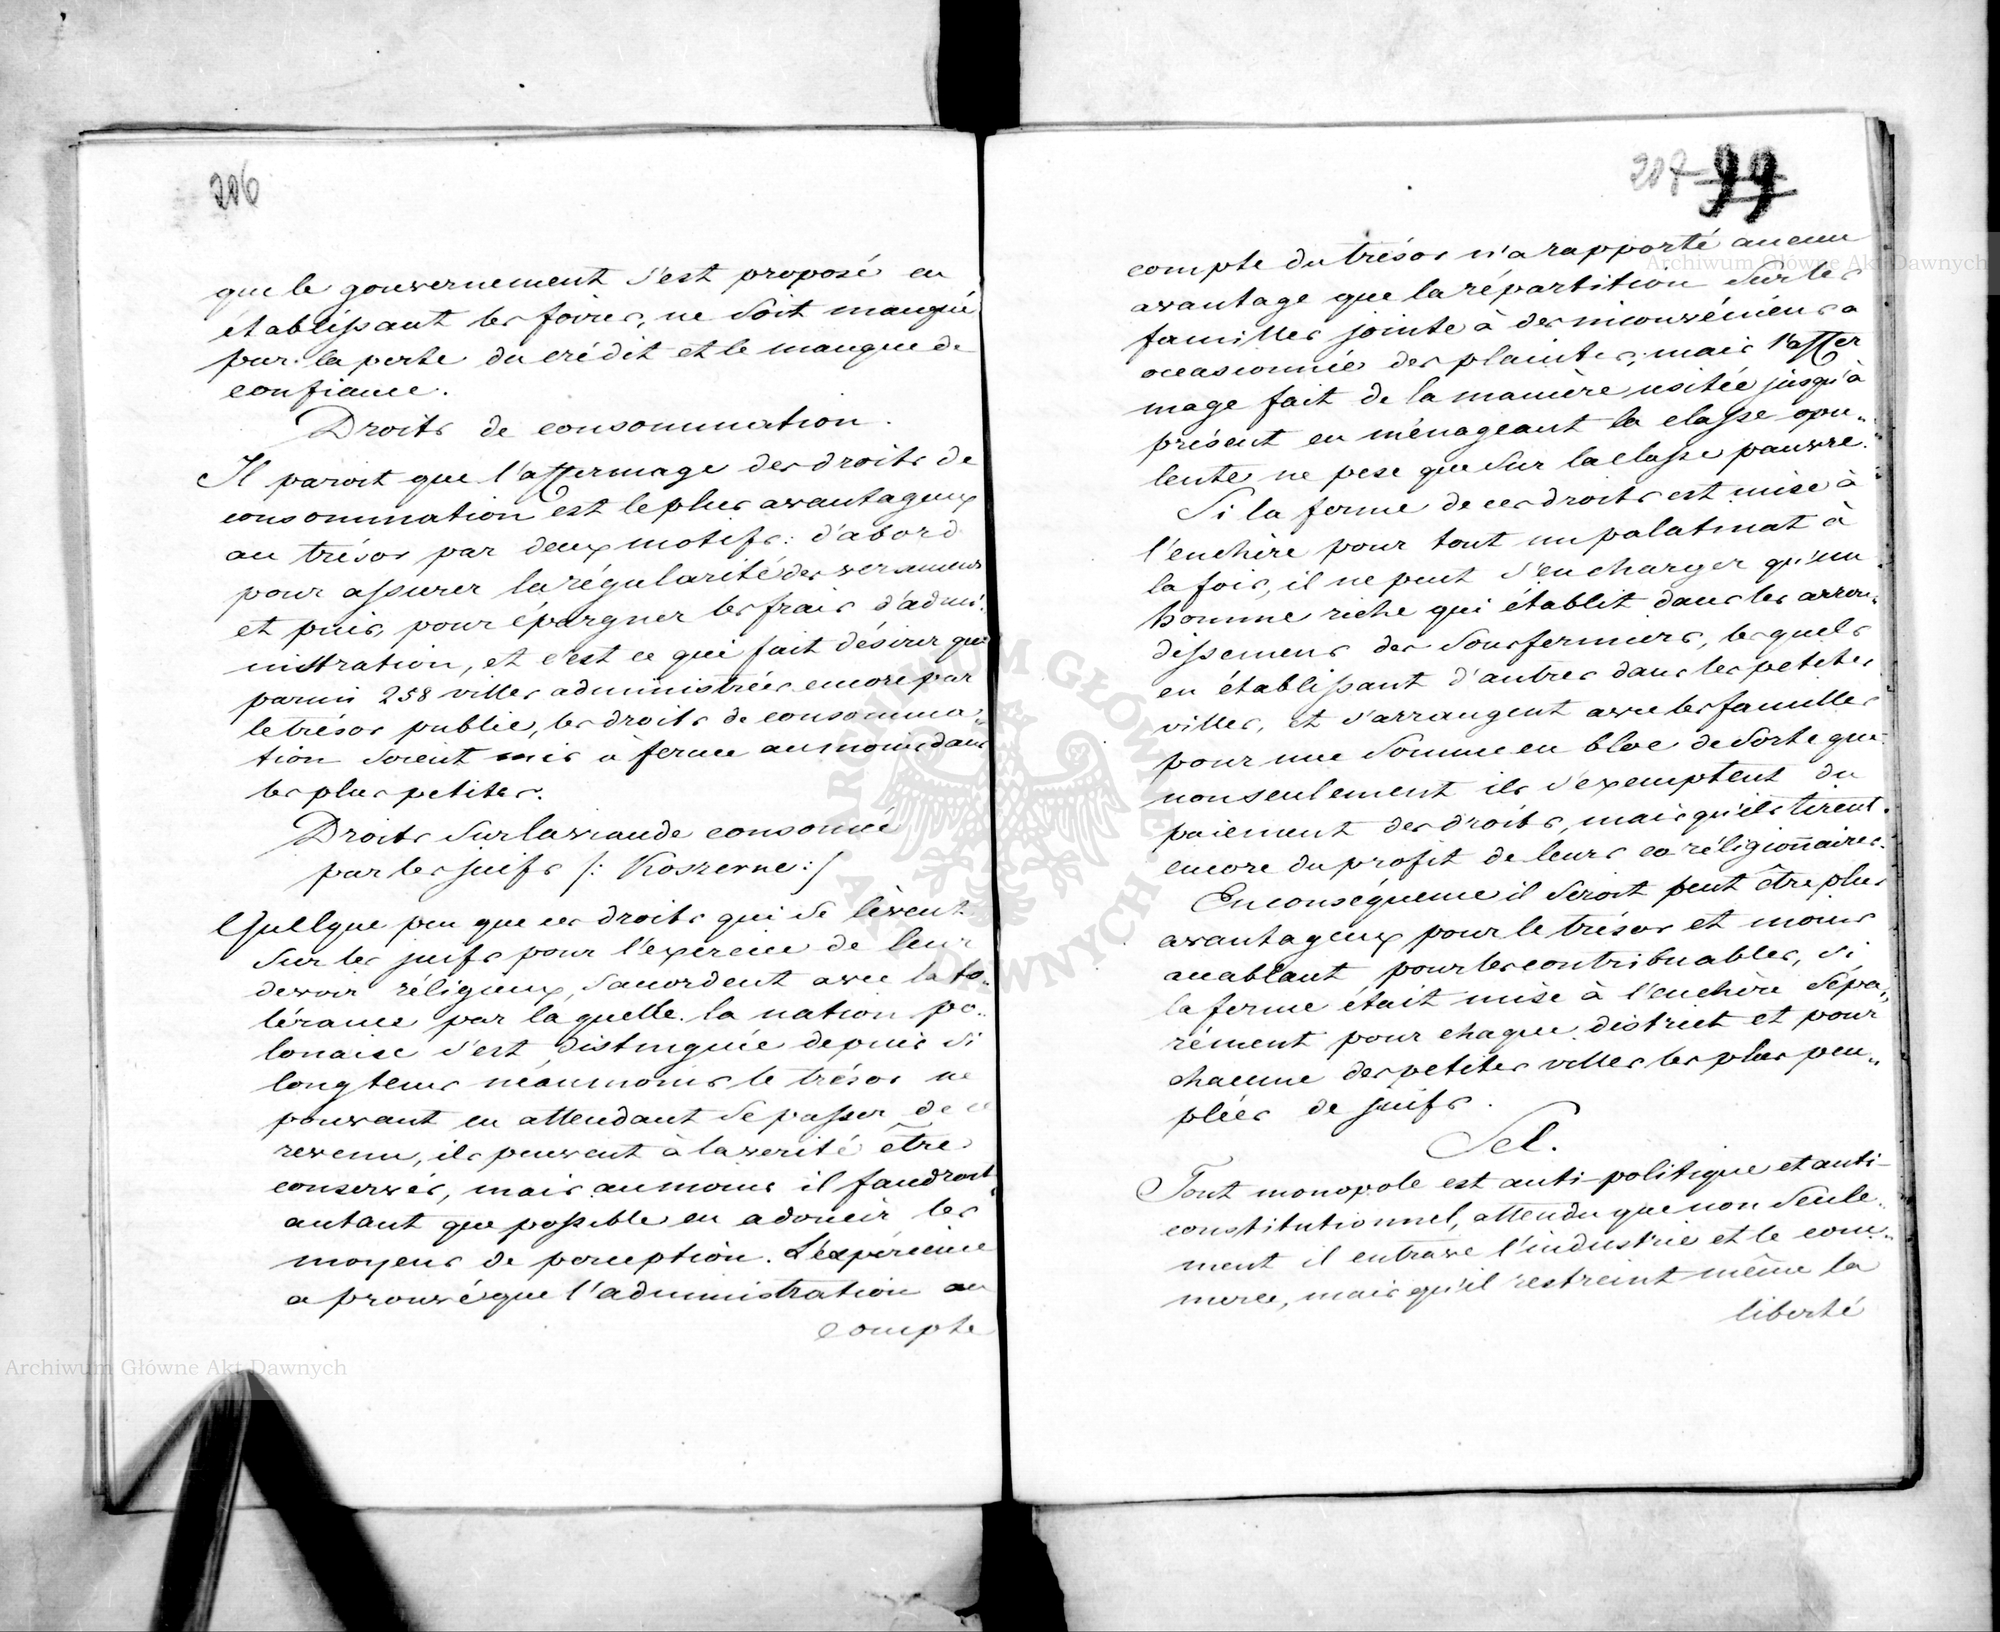 206
que le gouvernement s'est proposé en
établissant les foires, ne soit manqué
par la perte du crédit et le manque de
confiance.
Droits de consommation.
Il paroit que l'affermage des droits de
consommation est le plus avantageux
au trésor par deux motifs: d'abord
pour assurer la régularité des versemens
et puis, pour épargner les frais d'admi-
nistration, et c'est ce qui fait désirer que
parmi 258 villes administrées encore par
le trésor public, les droits de consomma-
tion soient mis à ferme au moins dans
les plus petites.
Droits sur la viande consomée
par les juifs /: Koszerne :/
Quelque peu que ces droits qui se lèvent
sur les juifs pour l'exercice de leur
devoir réligieux, s'accordent avec la to-
lérance par laquelle la nation po-
lonaise s'est distinguée depuis si
longtems néanmoins le trésor ne
pouvant en attendant se passer de ce
revenu, ils peuvent à la verité être
conservés, mais au moins il faudroit
autant que possible en adoucir les
moyens de perception. L'expérience
a prouvé que l'administration au
compte
207 99
compte du trésor n'a rapporté aucun
avantage que la répartition sur les
familles jointe à des inconvéniens a
occasionnée des plaintes; mais l'affer
mage fait de la manière usitée jusqu'à
présent en ménageant la classe opu-
lente ne pese que sur la classe pauvre.
Si la ferme de ces droits est mise à
l'enchère pour tout un palatinat à
la fois, il ne peut s'en charger qu'un
homme riche qui établit dans les arron-
dissemens des sousfermiers, lesquels
en établissant d'autres dans les petites
villes, et s'arrangent avec les familles
pour une somme en bloc de sorte que
nonseulement ils s'exemptent du
paiement des droits, mais qu'ils tirent
encore du profit de leurs co réligionnaires.
En conséquence il seroit peut être plus
avantageux pour le trésor et moins
accablant pour les contribuables, si
la ferme était mise à l'enchère sépa-
rément pour chaque district et pour
chacune des petites villes les plus peu-
plées de juifs.
Sel.
Tout monopole est anti-politique et anti-
constitutionnel, attendu que non seule-
ment il entrave l'industrie et le com-
merce, mais qu'il restreint même la
liberté
Archiwum Główne Akt Dawnych
Archiwum Główne Akt Dawnych
ARCHIWUM GŁÓWNE AKT DAWNYCH